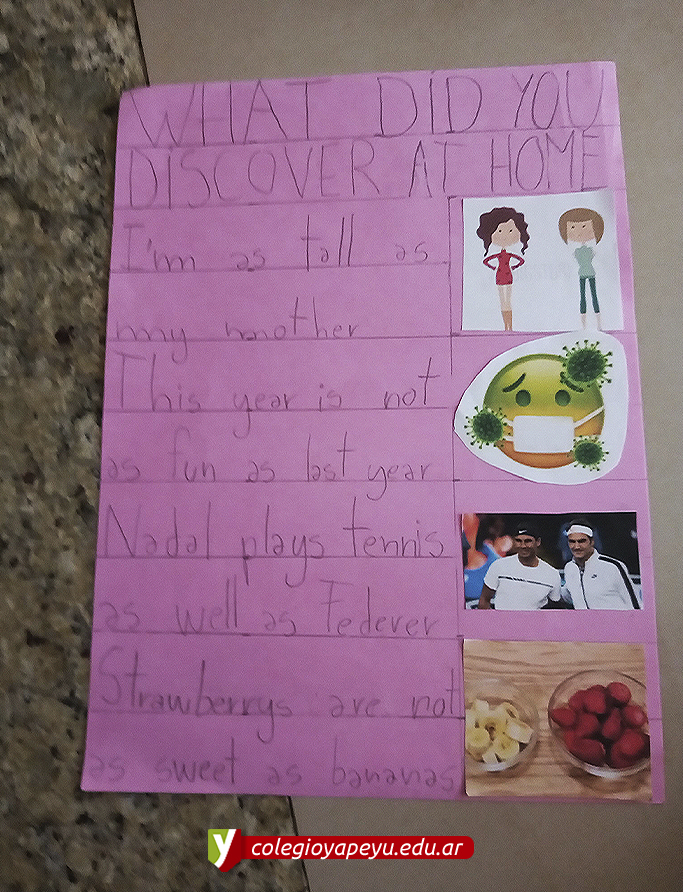 WHAT DID YOU
DISCOVER AT HOME
I'm as tall as
my mother
This year is not
as fun as last year
Nadal plays tennis
as well as Federer
Strawberrys are not
as sweet as bananas
colegioyapeyu.edu.ar